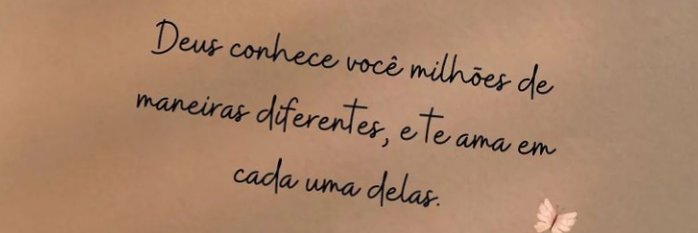 Deus conhece você milhões de
maneiras diferentes, e te ama em
cada uma delas.